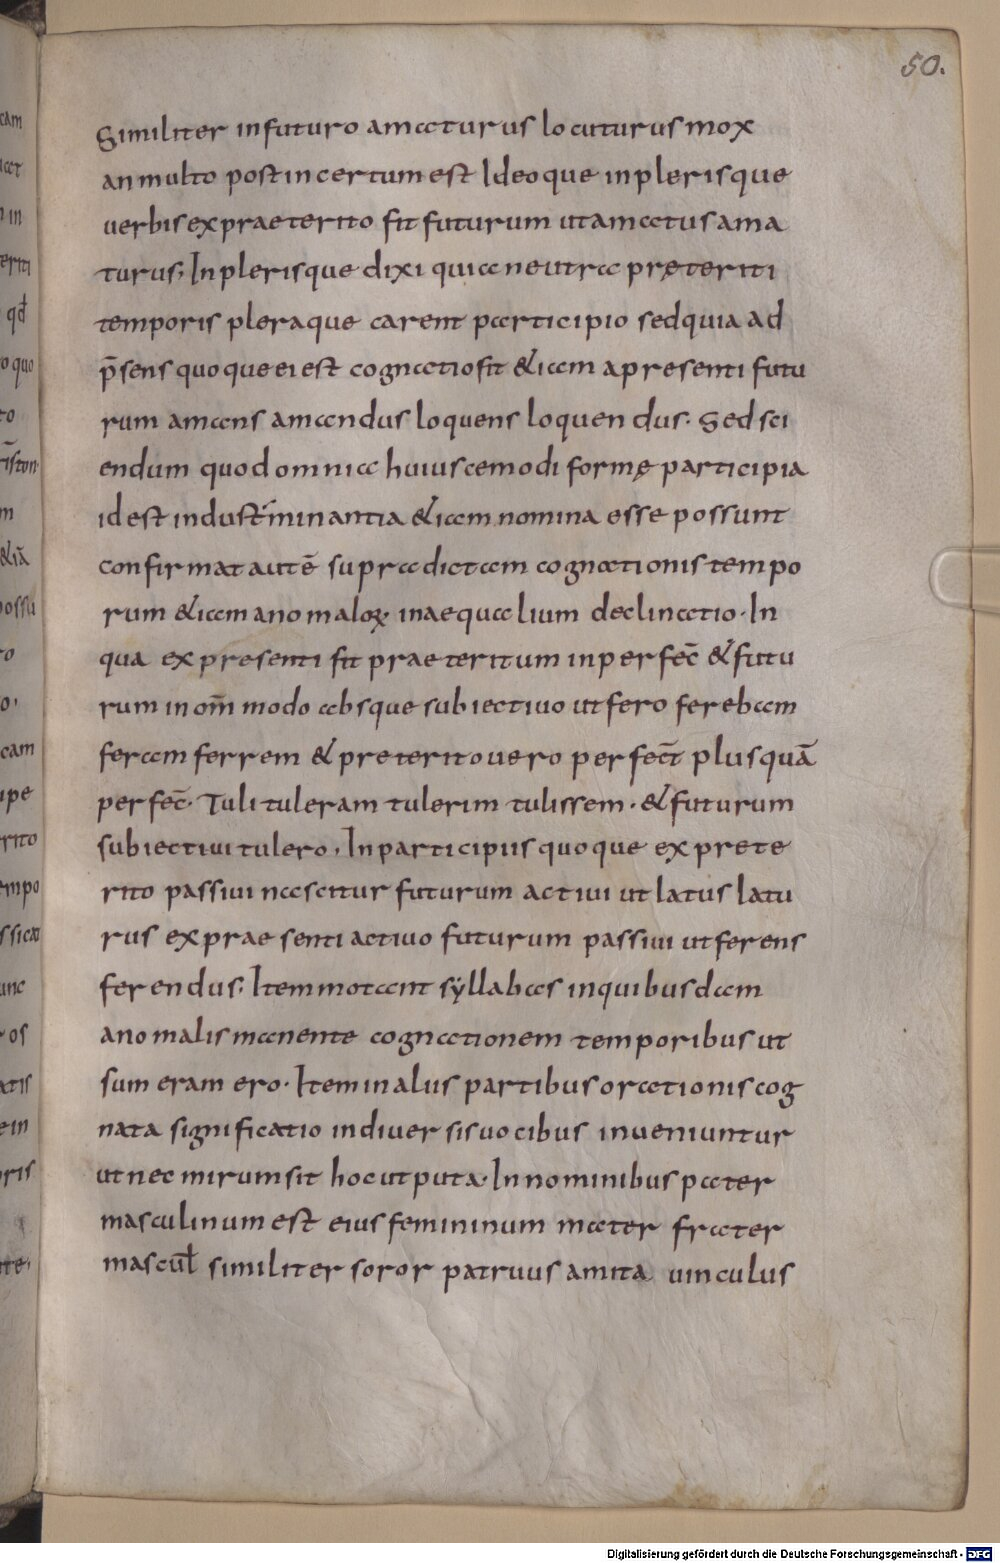 50.
Similiter infuturo amaturus locuturus mox
an multo post incertum est Ideoque inplerisque
uerbis expraeterito fit futurum ut amatus ama
turus; Inplerisque dixi quia neutra pręteriti
temporis pleraque carent participio sed quia ad
p̄sens quoque ei est cognatio fit &iam apresenti futu
rum amans amandus loquens loquendus. Sed sci
endum quod omnia huiuscemodi formę participia
id est indust'minantia &iam nomina esse possunt
confirmat autē supra dictam cognationis tempo
rum &iam anomaloꝝ. inaequalium declinatio. In
qua ex presenti fit praeteritum inperfec̄ & futu
rum in om̄ modo absque subiectiuo ut fero ferebam
feram ferrem & preterito uero perfec̄t plusquā
perfec̄. Tuli tuleram tulerim tulissem. & futurum
subiectiui tulero. In participiis quoque ex prete
rito passiui nascitur futurum actiui ut latus latu
rus ex praesenti actiuo futurum passiui ut ferens
ferendus; Item motant syllabas inquibusdam
anomalis manente cognationem temporibus ut
sum eram ero. Item in aliis partibus orationis cog
nata significatio indiuersis uocibus inueniuntur
ut nec mirum sit hoc ut puta. In nominibus pater
masculinum est eius femininum mater frater
mascul̄ similiter soror patruus amita uinculus
Digitalisierung gefördert durch die Deutsche Forschungsgemeinschaft - DFG